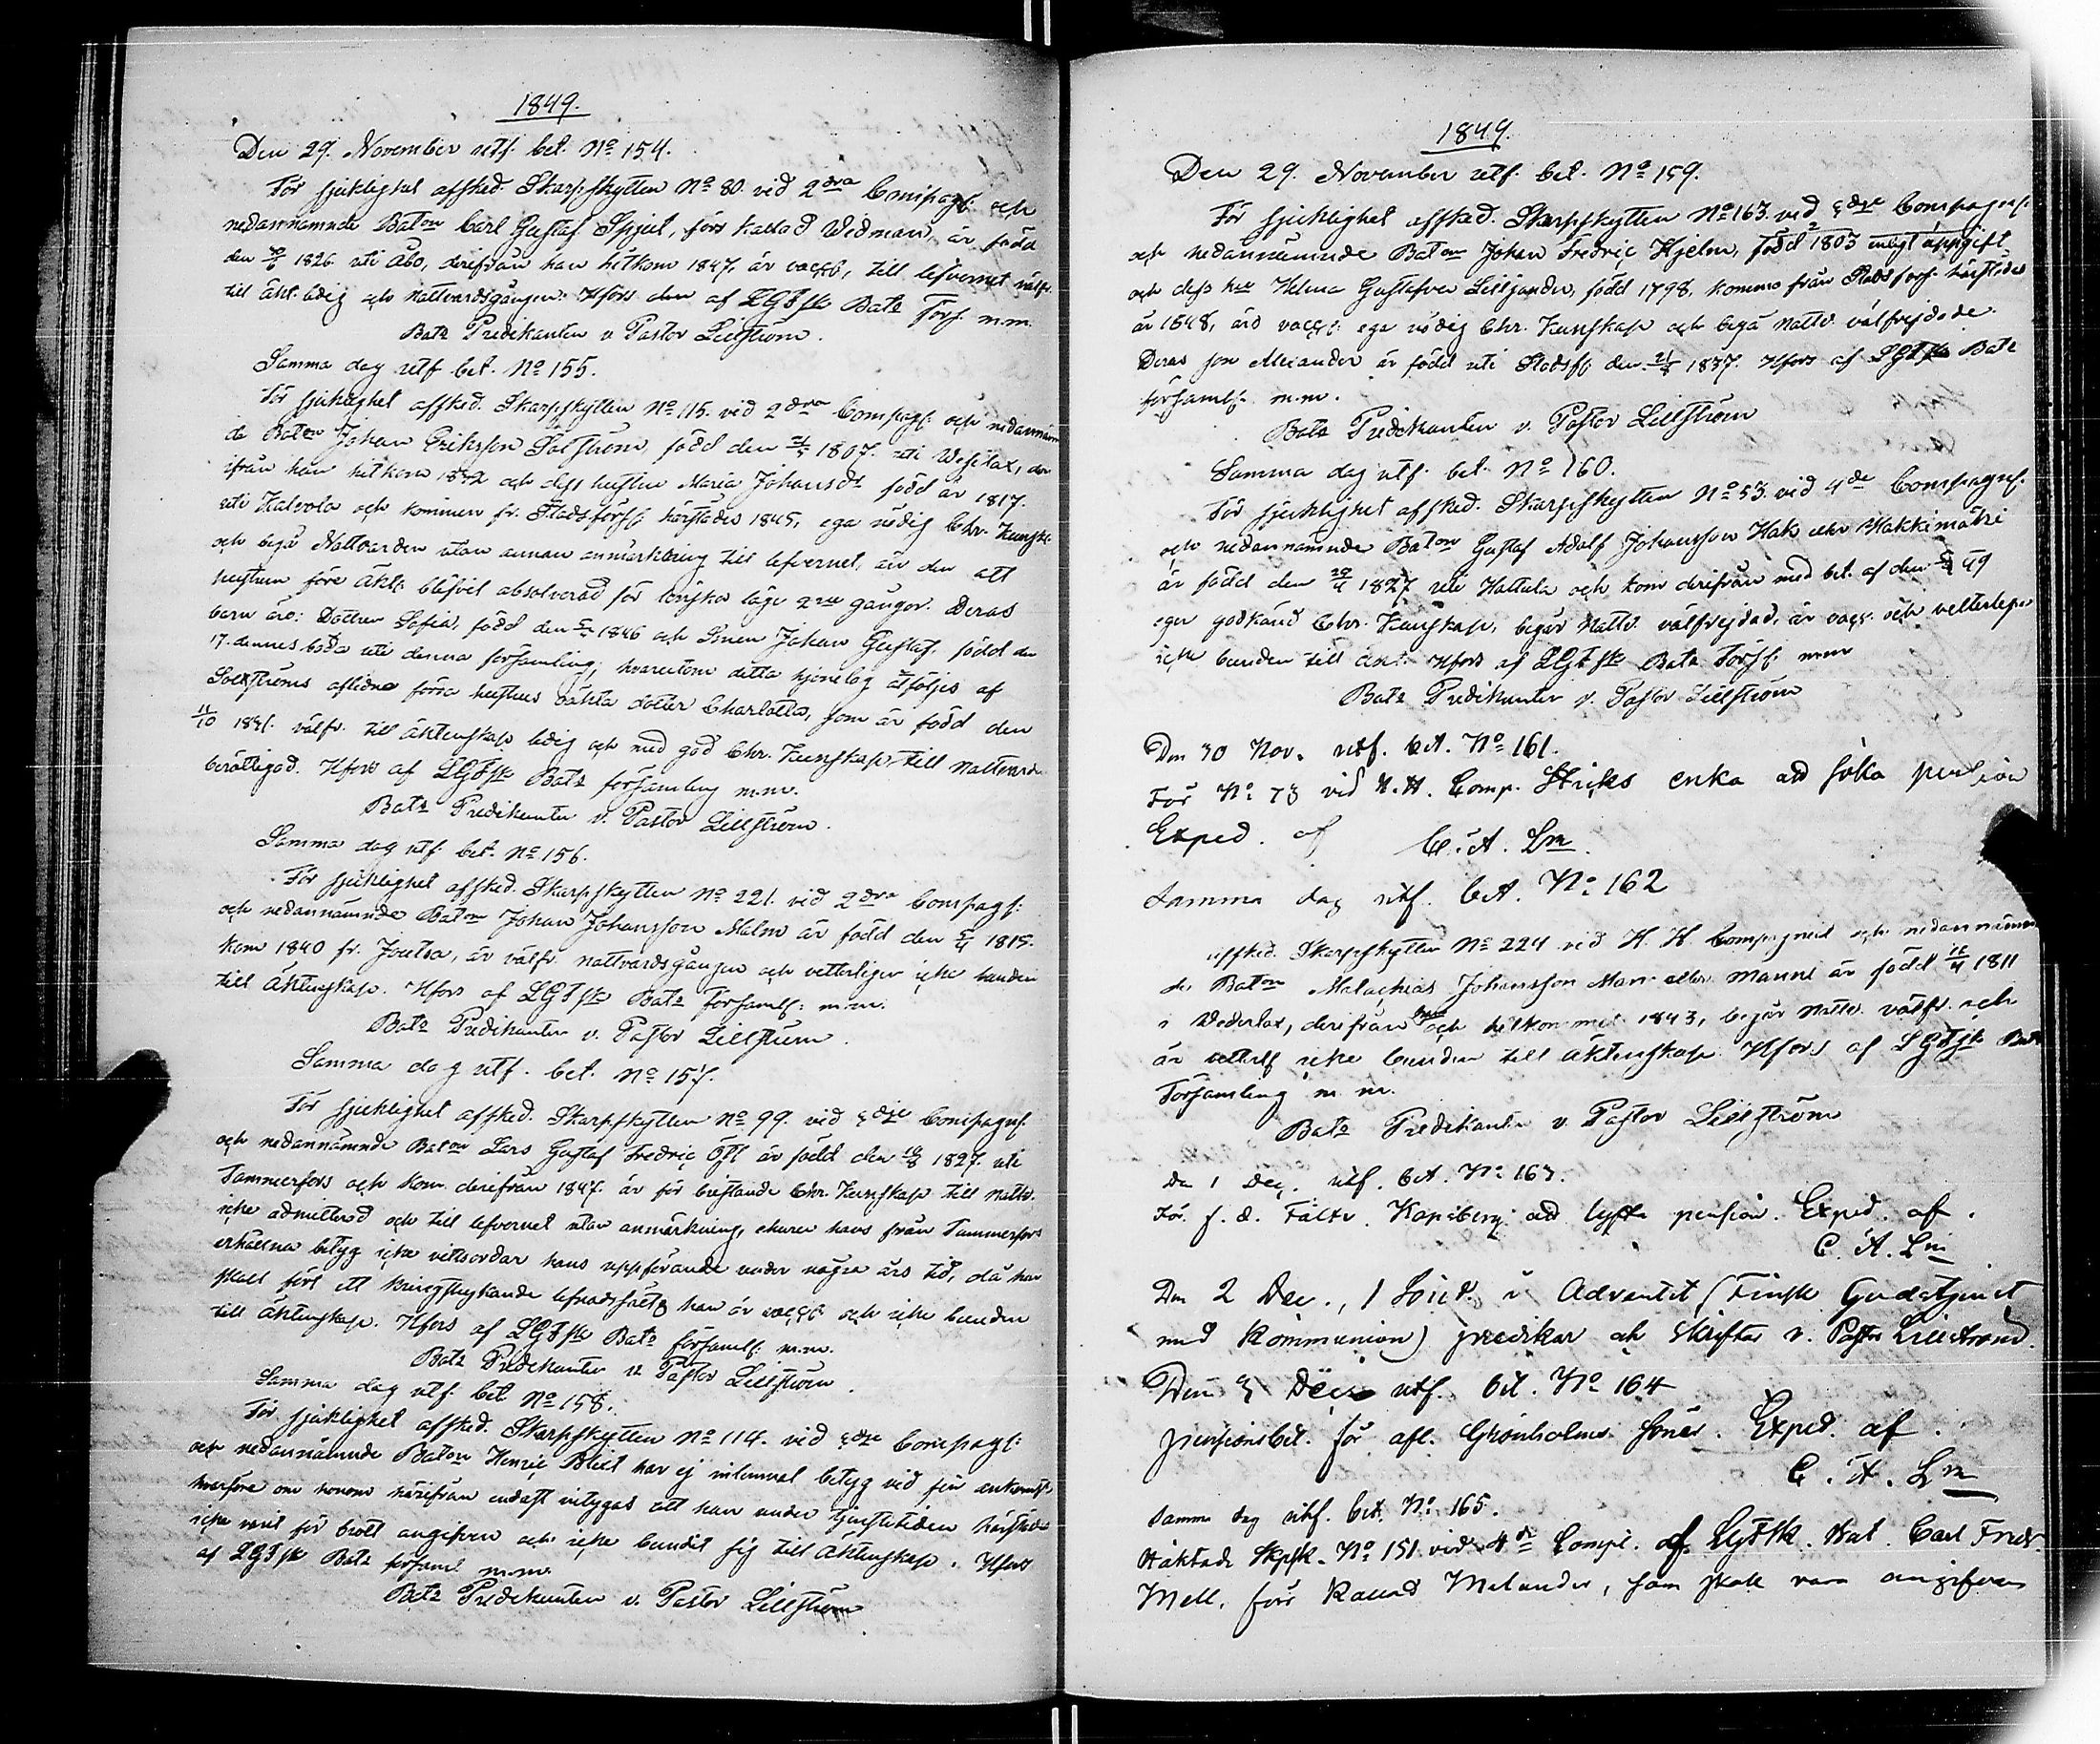 1849.
Den 29. November utf. bet. No 154.
För sjuklighet afsked. Skarpskytten No 80. vid 2dra Compagf. och
nedannämnde Baton Carl Gustaf Spjut, förr kallad Widman, är född
den 1826 uti Åbo, derifrån han hitkom 1847, är vacc., till lefvernet välfr.
till äkt. ledig och Nattvardsgången. Hfors den af LGFSk Bats Förs. m.m.
Bats Predikanten v. Pastor Lillström.
Samma dag utf. bet. No 155.
För sjuklighet afsked. Skarpskytten No 115. vid 2dra Compagf. och nedannämn
de Baton Johan Eriksson Solström, född den 1807. uti Wesilax, der
ifrån han hitkom 1842 och dess hustru Maria Johansdr född år 1817.
uti Kalvola och kommen fr. Stadsförs. härstädes 1845, ega nödig Chr. Kunsk.
och begå Nattvarden utan annan anmärkning till lefvernet, än den att
hustrun före äkt. blifvit absolverad för lönska läge 2ne gånger. Deras
barn äro: Dottren Sofia, född den 1846 och Sonen Johan Gustaf, född den
17. dennes båda uti denna församling, hvarutom detta hjonelag åtföljes af
Solströms aflidne förra hustrus oäkta dotter Charlotta, som är född den
11/10 1831. välfr. till äktenskap ledig och med god Chr. Kunskap till Nattvarden
berättigad. Hfors af LGFSk Bats församling m.m.
Bats Predikanten v. Pastor Lillström.
Samma dag utf. bet. No 156.
För sjuklighet afsked. Skarpskytten No 221. vid 2dra Compagf:
och nedannämnde Baton Johan Johansson Malm är född den 1815.
kom 1840 fr. Joutsa, är välfr. nattvardsgången och vetterligen icke bunden
till Äktenskap. Hfors af LGFSk Bats Församl: m.m.
Bats Predikanten v. Pastor Lillström.
Samma dag utf. bet. No 157.
För sjuklighet afsked. Skarpskytten No 99. vid 3dje Compagf.
och nedannämnde Baton Lars Gustaf Fredric Öst är född den 1827. uti
Tammerfors och kom derifrån 1847. är för bristande Chr. Kunskap till Nattv.
icke admitterad och till lefvernet utan anmärkning, ehuru hans från Tammerfors
erhållna betyg icke vitsordar hans uppförande under några års tid, då han
skall fört ett kringstrykande lefnadssätt, han är vacc. och icke bunden
till Äktenskap. Hfors af LGFSk Bats församl: m.m.
Bats Predikanten v. Pastor Lillström.
Samma dag utf. bet. No 158.
För sjuklighet afsked. Skarpskytten No 114. vid 3dje Compagf:
och nedannämnde Baton Henric Blixt har ej inlemnat betyg vid sin ankomst,
hvarföre om honom härifrån endast intygas att han under tjenstetiden härstädes
icke varit för brott angifven och icke bundit sig till Äktenskap. Hfors
af LGFSk Bats församl m.m.
Bats Predikanten v. Pastor Lillström
1849.
Den 29. November utf. bet. No 159.
För sjuklighet afsked. Skarpskytten No 163. vid 3dje Compagnf.
och nedannämnde Baton Johan Fredric Hjelm, född 1803 enligt uppgift
och dess hu Helena Gustafva Liljander, född 1798. komna från Stadsförs. härstädes
år 1848, äro vacc: ega nödig Chr. Kunskap och begå Nattv. välfrejdade.
Deras son Alexander är född uti Stadsf. den 1837. Hfors af LGFSk Bats
församl. m.m.
Bats Predikanten v. Pastor Lillström
Samma dag utf. bet. No 160.
För sjuklighet afsked. Skarpskytten No 53. vid 4de Compagnf.
och nedannämnde Baton Gustaf Adolf Johansson Hak eller Hakkimäki
är född den 1827 uti Hattula och kom derifrån med bet. af den 49
eger godkänd Chr. Kunskap, begår Nattv. välfrejdad, är vacc. och vetterligen
icke bunden till äkt. Hfors af LGFSk Bats Förs: m.m
Bats Predikanten v. Pastor Lillström
Den 30 Nov. utf. bet. No 161.
För No 73 vid Comp. enka att söka pension
Exped. af C. A. Lm.
Samma dag utf. bet. No 162
afsked. Skarpskytten No 224 vid Compagniet och nedannämn
de Baton Malachias Johansson Man eller Manni är född 1811
i Wederlax, derifrån och hitkommit 1843, begår Nattv. välfr. och
är vetterl. icke bunden till Äktenskap. Hfors af LGFSk Bats
Församling m.m.
Bats Predikanten v. Pastor Lillström
Den 1 Dec. utf. bet. No 163.
För f. d. Fältv. Kapsberg att lyfta pension. Exped. af
C. A. Lm
Den 2 Dec., 1 Sönd. i Adventet (Finsk Gudstjenst
med Kommunion) predikar och skriftar v. Pastor Lillström.
Den 3 Dec. utf. bet. No 164
pensionsbet. för afl. Grönholms söner. Exped. af
C. A. Lm
Samma dag utf. bet. No 165.
Häktade Skpsk. No 151 vid 4de Comp. af LGFSk. Bat. Carl Fredr.
Mell, förr kallad Melander, som skall vara angifven